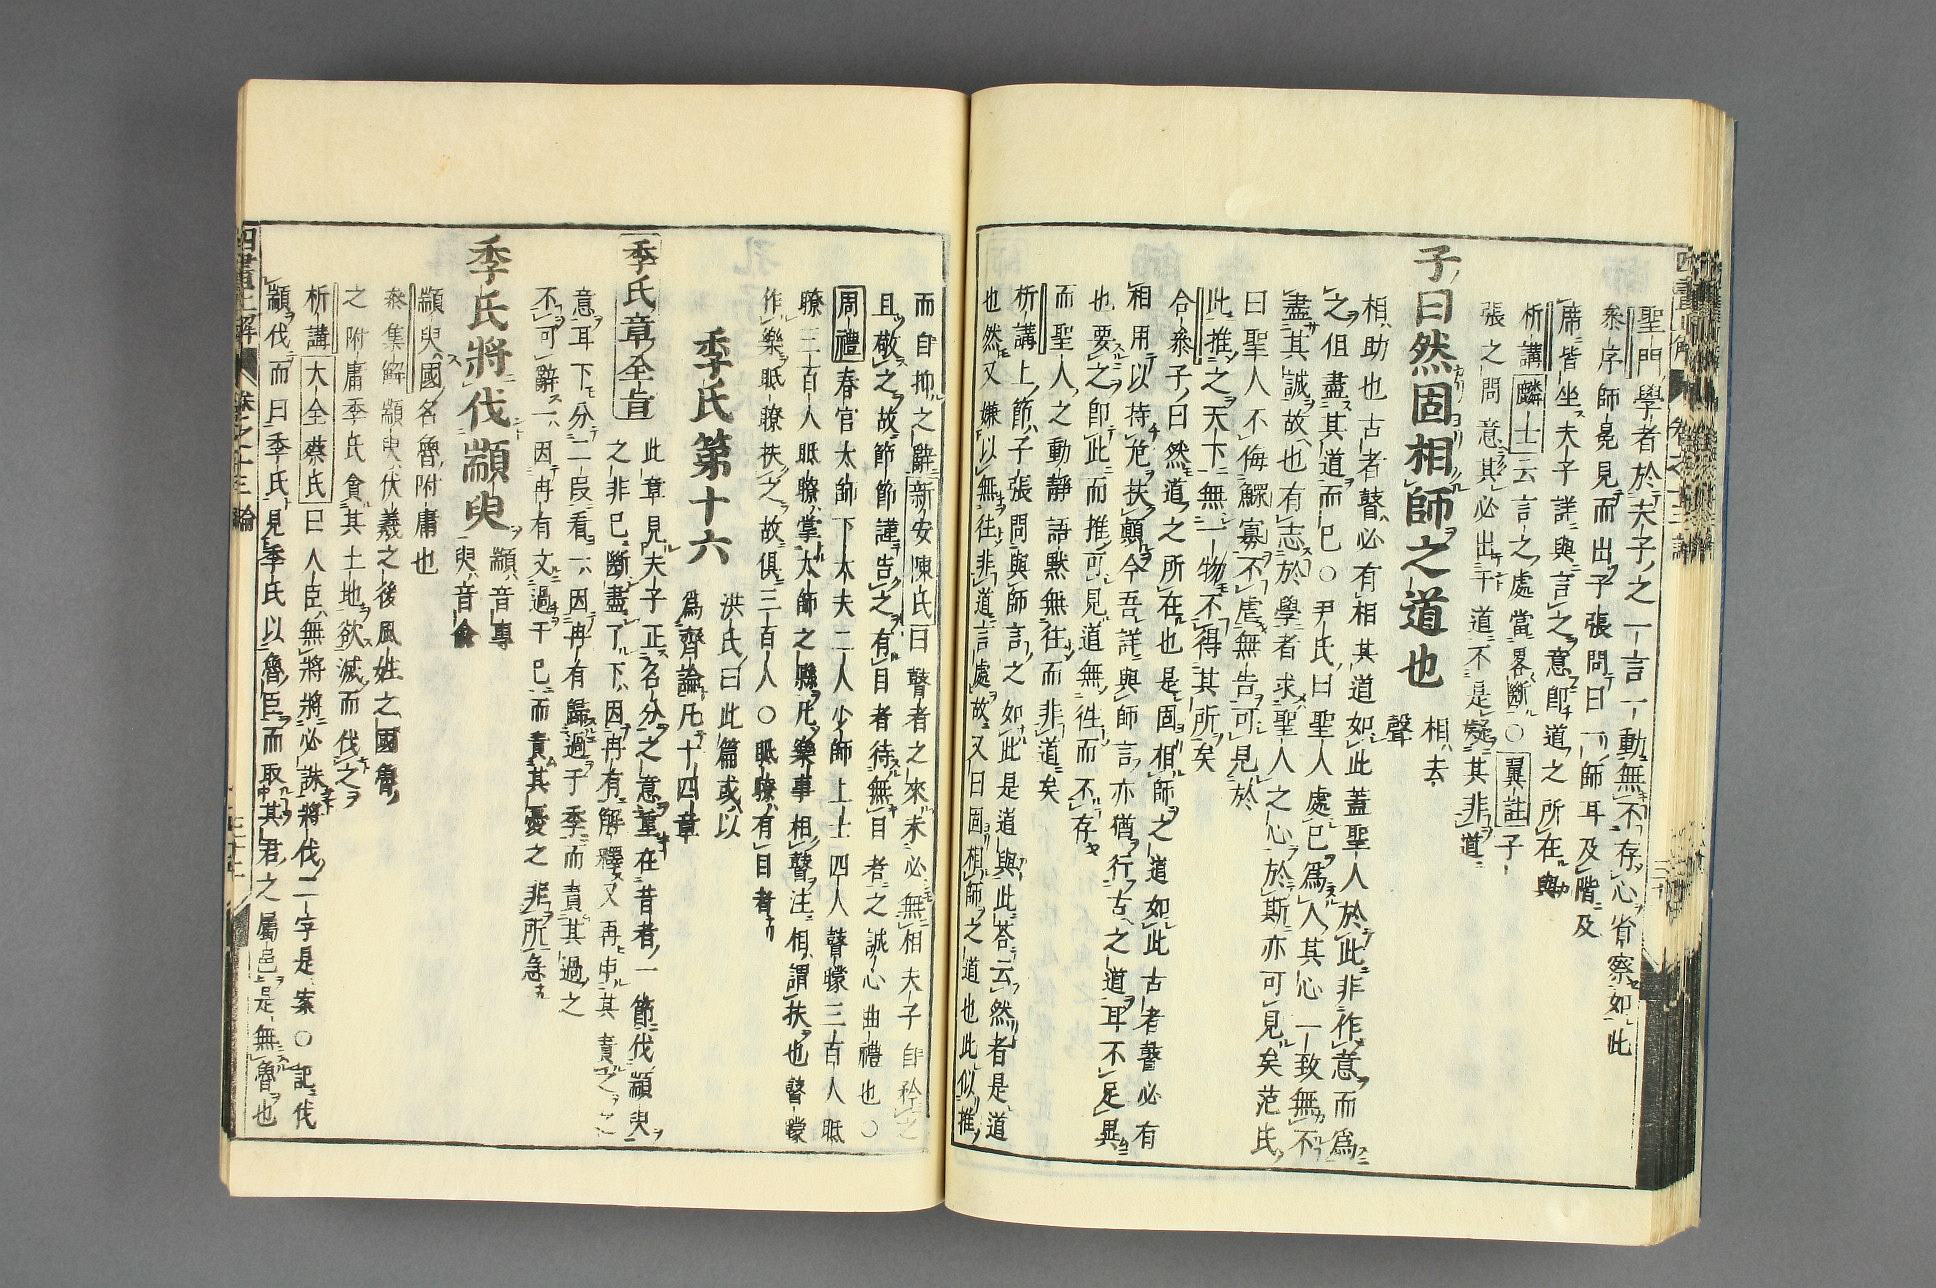 聖門學者於夫子之一言一動無不存心省察如此
𠫭序師冕見而出子張問曰一師耳及階及
席皆坐夫子詳與言之意卽道之所在與
析講麟士云言之處當畧斷○翼註子
張之問意其必出于道不是疑其非道
子曰然固相師之道也
相去
聲
相助也古者瞽必有相其道如此蓋聖人於此非作意而爲
之但盡其道而已○尹氏曰聖人處已爲人其心一致無不
盡其誠故也有志於學者求聖人之心於斯亦可見矣范氏
曰聖人不侮鰥寡不虐無告可見於
此推之天下無一物不得其所矣
合𠫭子曰然道之所在也是固相師之道如此古者瞽必有
相用以持危扶顚今吾詳與師言亦猶行古之道耳不足異
也要之卽此而推可見道無往而不存
而聖人之動靜語默無往而非道矣
析講上節子張問與師言之如此是道與此荅云然者是道
也然又嫌以無往非道言處故又曰固相師之道也此似推
而自抑之辭新安陳氏曰瞽者之來未必無相夫子自矜之
且敬之故節節謹告之有目者待無目者之誠心曲禮也○
周禮春官太師下大夫二人少師上士四人瞽矇三百人眡
瞭三百人眡瞭掌大師之縣凡樂事相瞽注相謂扶也瞽矇
作樂眡瞭扶之故俱三百人○眡瞭有目者
季氏第十六
洪氏曰此篇或以
爲齊論凡十四章
季氏章全旨
此章見夫子正名分之意重在昔者一節伐顓臾
之非已斷盡了下因冉有解釋又再申其責之之
意耳下分二段看一因冉有歸過于季而責其過之
不可辭一因冉有文過于已而責其憂之非所急
季氏將伐顓臾
顓音專
臾音兪
顓臾國名魯附庸也
𠫭集解顓臾伏羲之後風姓之國魯
之附庸季氏貪其土地欲滅而伐之
析講大全蔡氏曰人臣無將將必誅將伐二字是案○記伐
顓伐而曰季氏見季氏以魯臣而取其君之屬邑是無魯也